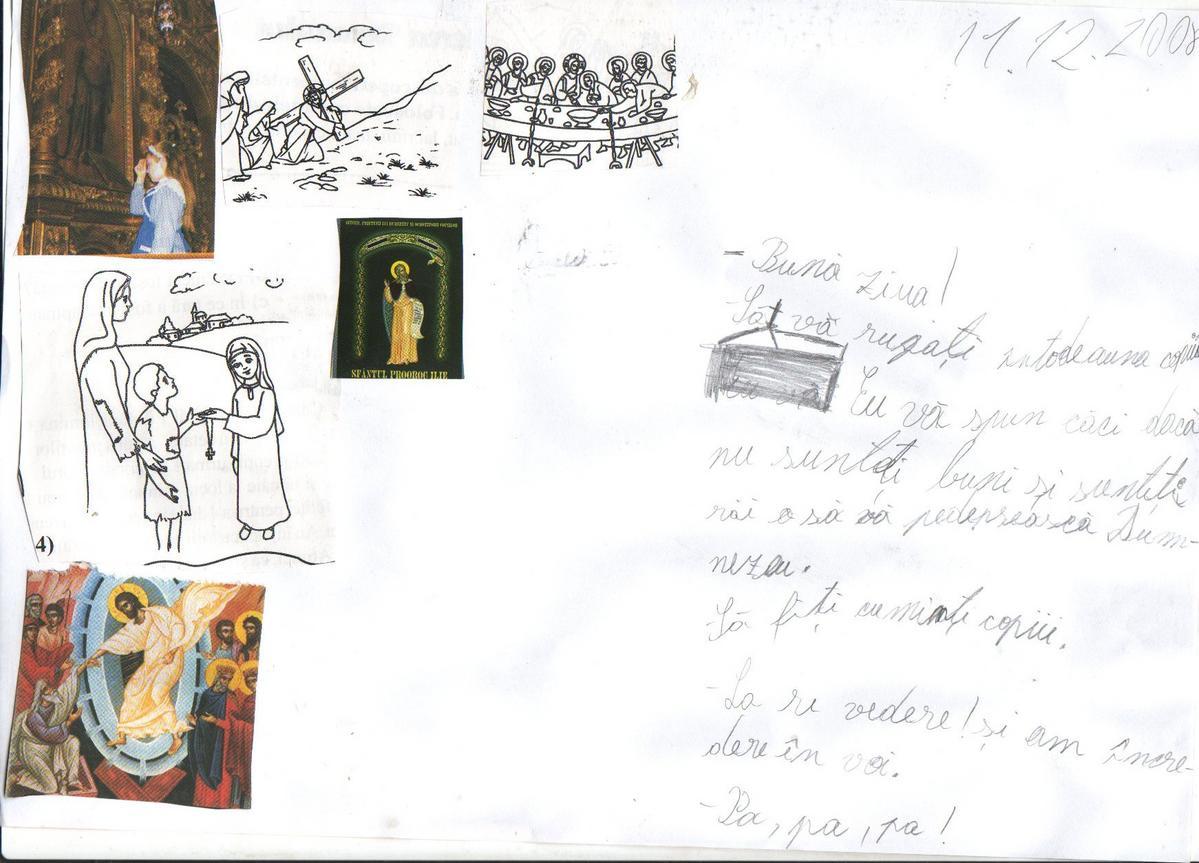 11.12.2008
- Bună ziua!
Să vă rugați întodeauna copii
Eu vă spun căci dacă
nu sunteți buni și sunteți
răi o să vă pedepsească Dum-
nezeu.
Să fiți cuminți copiii.
- La re vedere! și am încre-
dere în voi.
- Pa, pa, pa!
SFÂNTUL PROOROC ILIE
4)